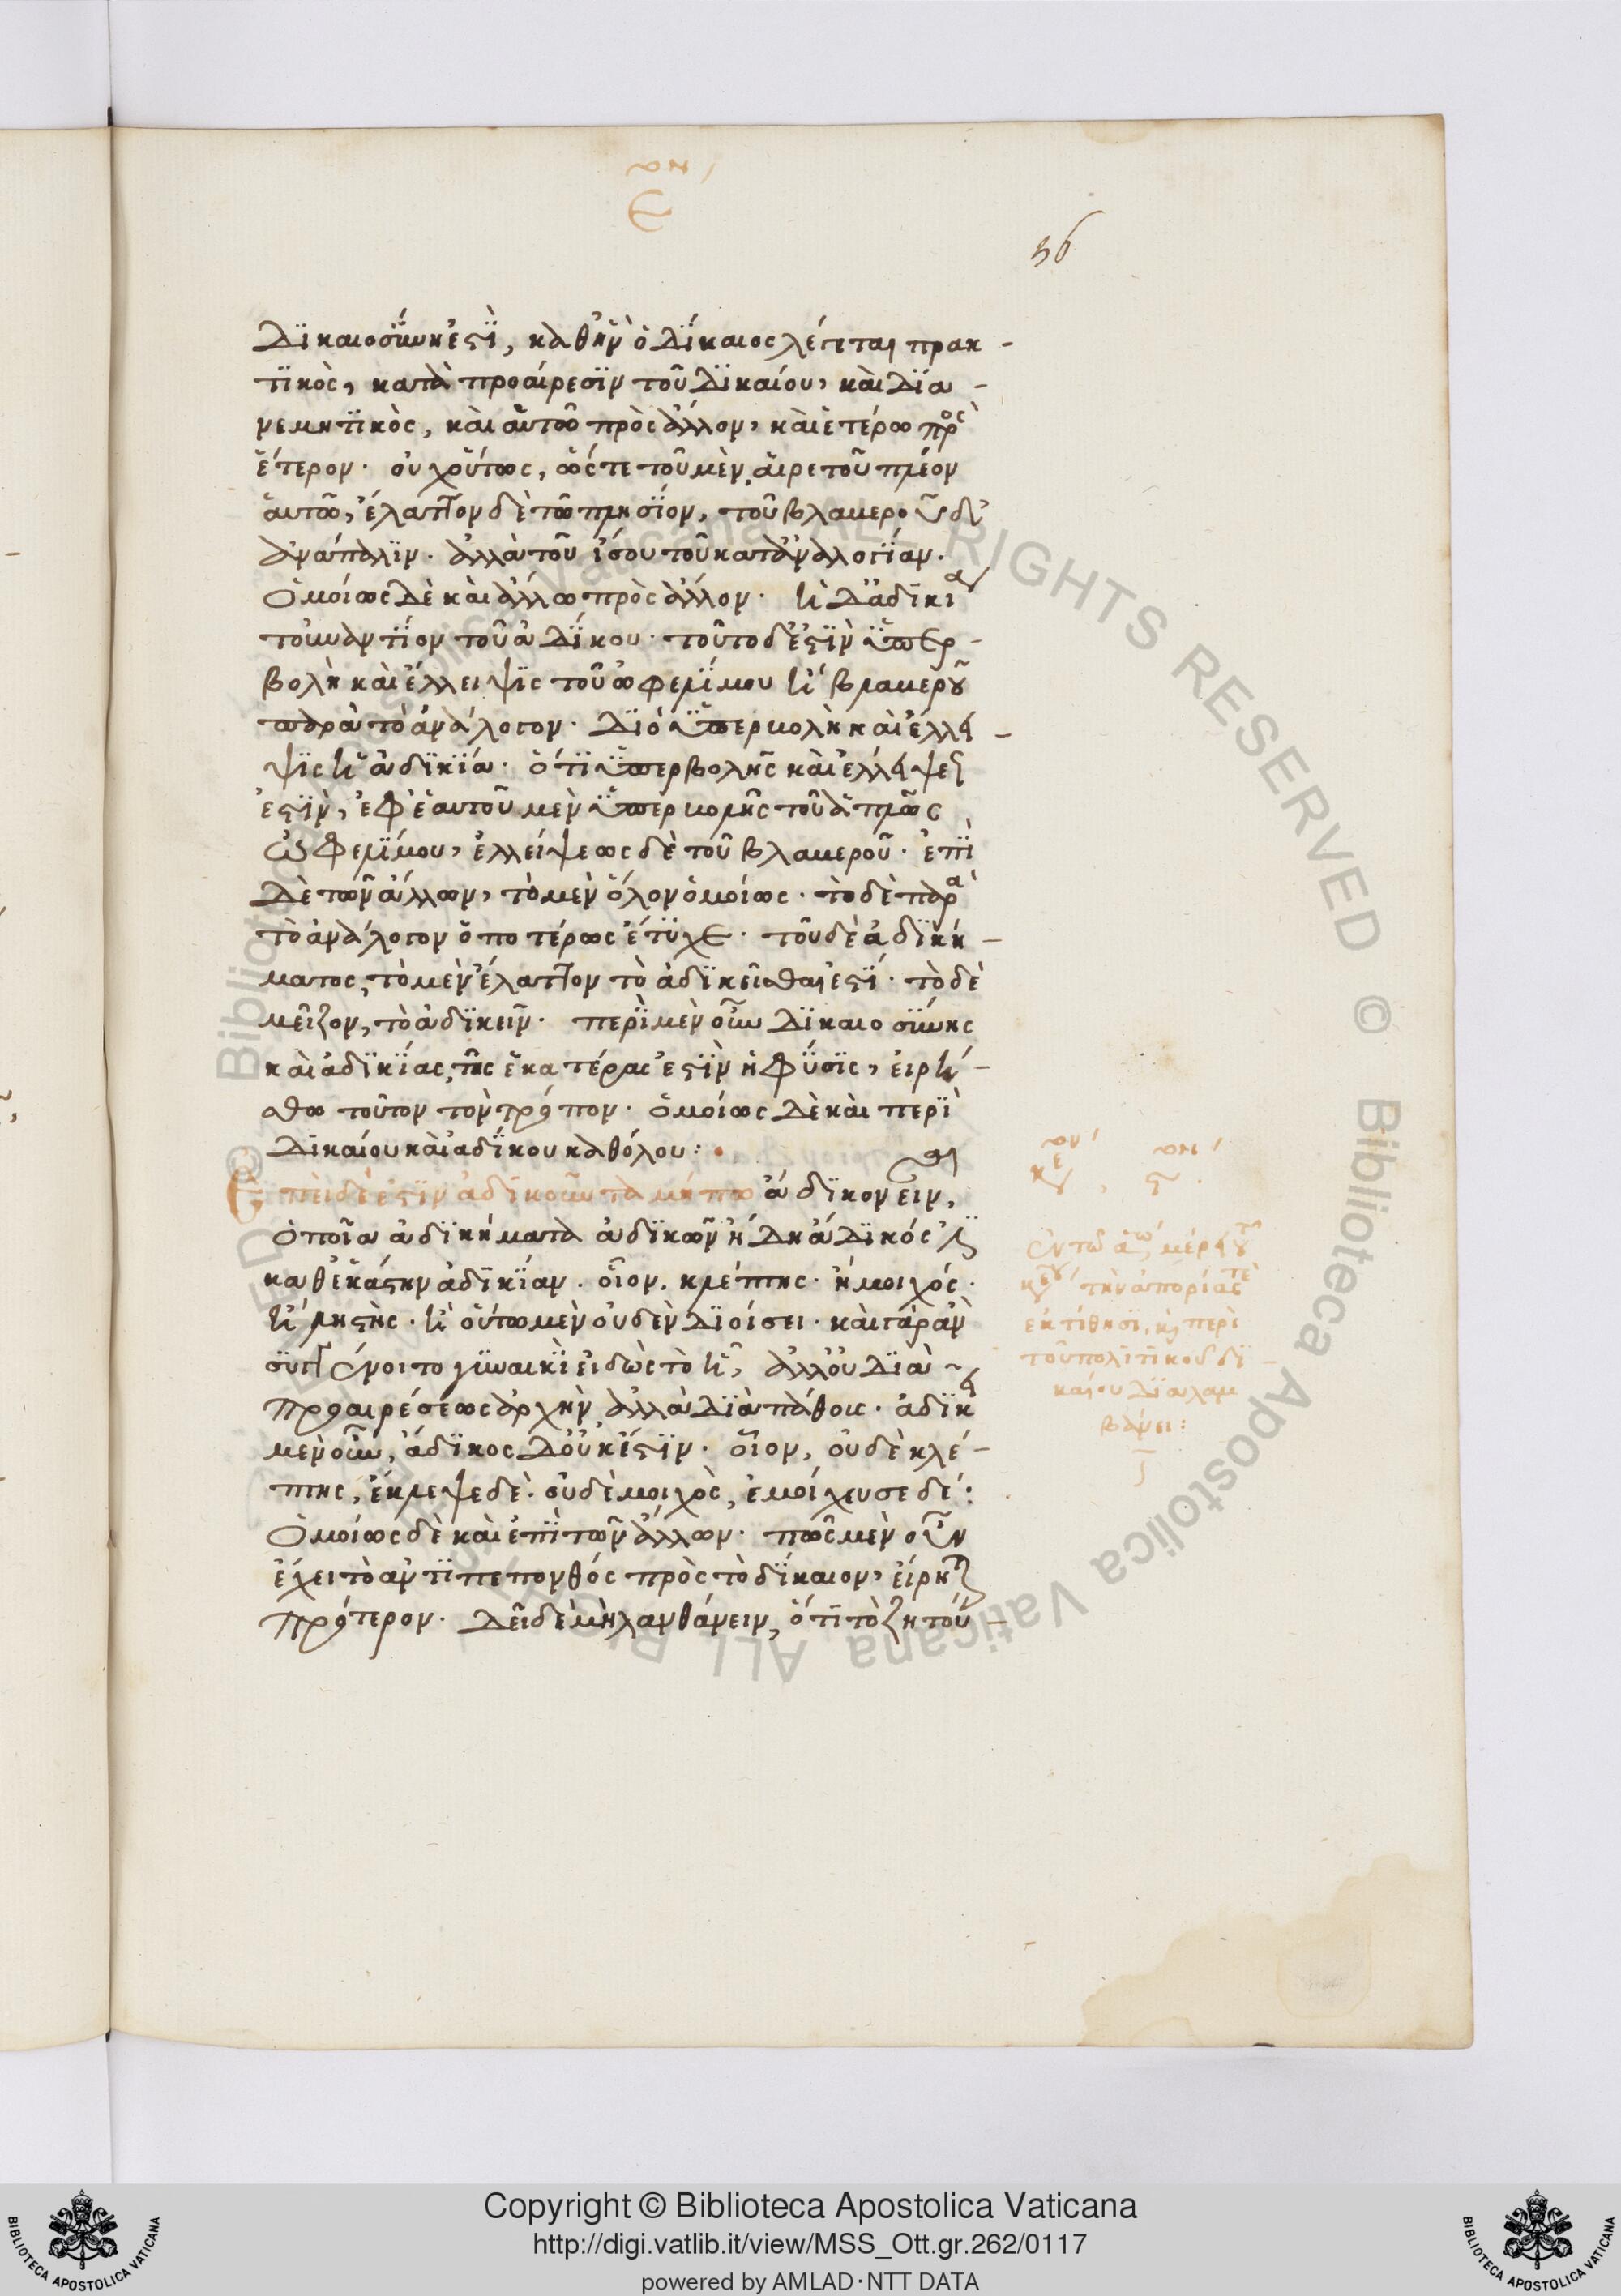 ε
56
δικαιοσύνη ἐστὶ, καθ' ἣν ὁ δίκαιος λέγεται πρακ-
τικὸς, κατὰ προαίρεσιν τοῦ δικαίου, καὶ δια-
νεμητικὸς, καὶ αὑτῶ πρὸς ἄλλον, καὶ ἑτέρω πρὸς
ἕτερον. οὐχ οὕτως, ὥστε τοῦ μὲν αἱρετοῦ πλέον
αὑτῶ, ἔλαττον δὲ τῶ πλησίον, τοῦ βλαβεροῦ δ'
ἀνάπαλιν. ἀλλὰ τοῦ ἴσου τοῦ κατ' ἀναλογίαν.
ὁμοίως δὲ καὶ ἄλλω πρὸς ἄλλον. ἡ δ' ἀδικία
τοὐναντίον τοῦ ἀδίκου. τοῦτο δ' ἐστὶν ὑπερ-
βολὴ καὶ ἔλλειψις τοῦ ὠφελίμου ἢ βλαβεροῦ
παρὰ τὸ ἀνάλογον. διὸ ὑπερβολὴ καὶ ἔλλει-
ψις ἡ ἀδικία. ὅτι ὑπερβολῆς καὶ ἐλλείψεώς
ἐστιν, ἐφ' ἑαυτοῦ μὲν ὑπερβολῆς τοῦ ἁπλῶς
ὠφελίμου, ἐλλείψεως δὲ τοῦ βλαβεροῦ. ἐπὶ
δὲ τῶν ἄλλων, τὸ μὲν ὅλον ὁμοίως. τὸ δὲ παρὰ
τὸ ἀνάλογον ὁποτέρως ἔτυχε. τοῦ δὲ ἀδική-
ματος, τὸ μὲν ἔλαττον τὸ ἀδικεῖσθαι ἐστί. τὸ δὲ
μεῖζον, τὸ ἀδικεῖν. περὶ μὲν οὖν δικαιοσύνης
καὶ ἀδικίας, τίς ἑκατέρας ἐστὶν ἡ φύσις, εἰρή-
σθω τοῦτον τὸν τρόπον. ὁμοίως δὲ καὶ περὶ
δικαίου καὶ ἀδίκου καθόλου:
Ἐπεὶ δέ ἐστιν ἀδικοῦντα μήπω ἄδικον εἶναι,
ὁποῖα ἀδικήματα ἀδικῶν ἤδη ἄδικός ἐστι
καθ' ἑκάστην ἀδικίαν. οἷον, κλέπτης. ἢ μοιχός.
ἢ ληστής. ἢ οὕτω μὲν οὐδὲν διοίσει. καὶ γὰρ ἂν
συγγένοιτο γυναικὶ εἰδὼς τὸ ᾗ, ἀλλ' οὐ διὰ
προαιρέσεως ἀρχὴν ἀλλὰ διὰ πάθος. ἀδικεῖ
μὲν οὖν, ἄδικος δ' οὐκ ἔστιν. οἷον, οὐδὲ κλέ-
πτης, ἔκλεψε δέ. οὐδὲ μοιχὸς, ἐμοίχευσε δέ:
ὁμοίως δὲ καὶ ἐπὶ τῶν ἄλλων. πῶς μὲν οὖν
ἔχει τὸ ἀντιπεπονθὸς πρὸς τὸ δίκαιον, εἴρηται
πρότερον. δεῖ δὲ μὴ λανθάνειν, ὅτι τὸ ζητού-
κεφ ς
Ἐν τῶ α μέρει τοῦ
κεφ τὴν ἀπορίαν τε
ἐκτίθησι, καὶ περὶ
τοῦ πολιτικοῦ δι-
καίου διαλαμ
βάνει:
Copyright © Biblioteca Apostolica Vaticana
http://digi.vatlib.it/view/MSS_Ott.gr.262/0117
powered by AMLAD·NTT DATA
BIBLIOTECA APOSTOLICA VATICANA
BIBLIOTECA APOSTOLICA VATICANA